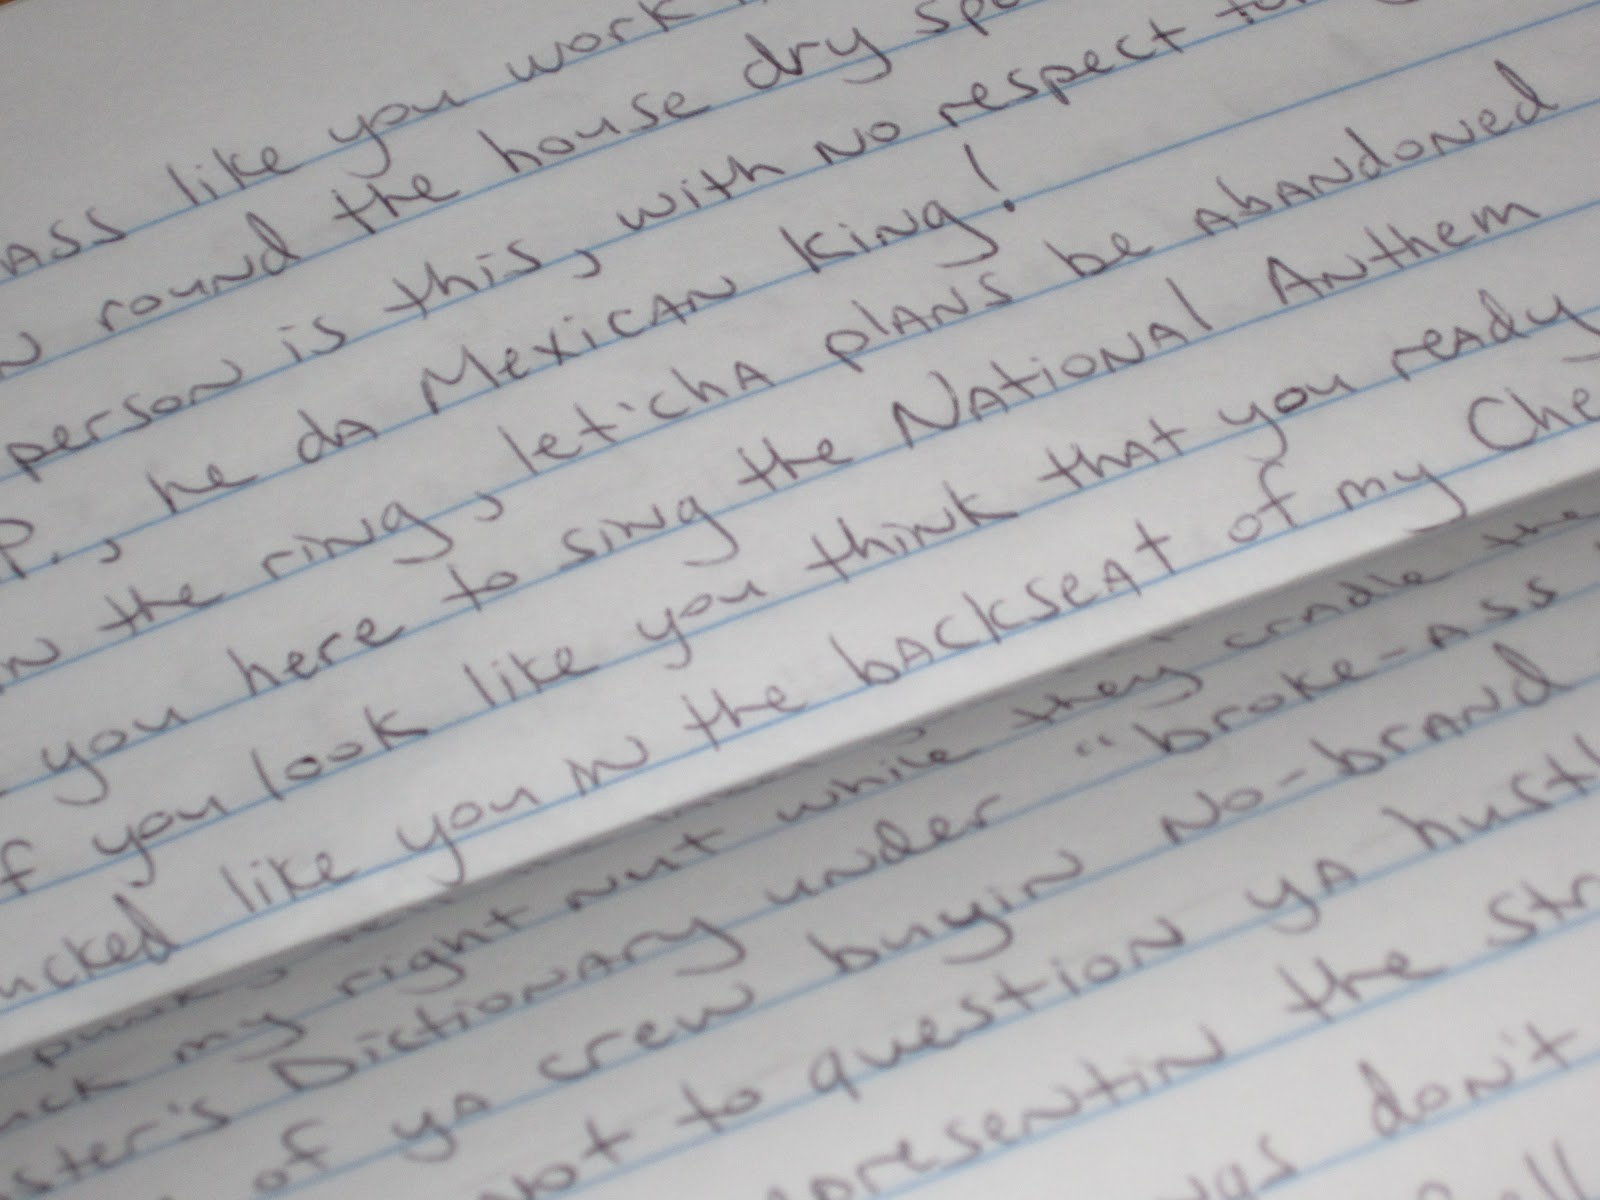 ass like you work
round the house dry
person is this, with no respect
P., he da Mexican King!
the ring, let'cha plans be abandoned
you here to sing the National Anthem
f you look like you think that you ready
ucked like you in the backseat of my Che
my right nut while they cradle the
ster's Dictionary under "broke-ass
of ya crew buyin no-brand
not to question ya hustl
presentin the str
don't